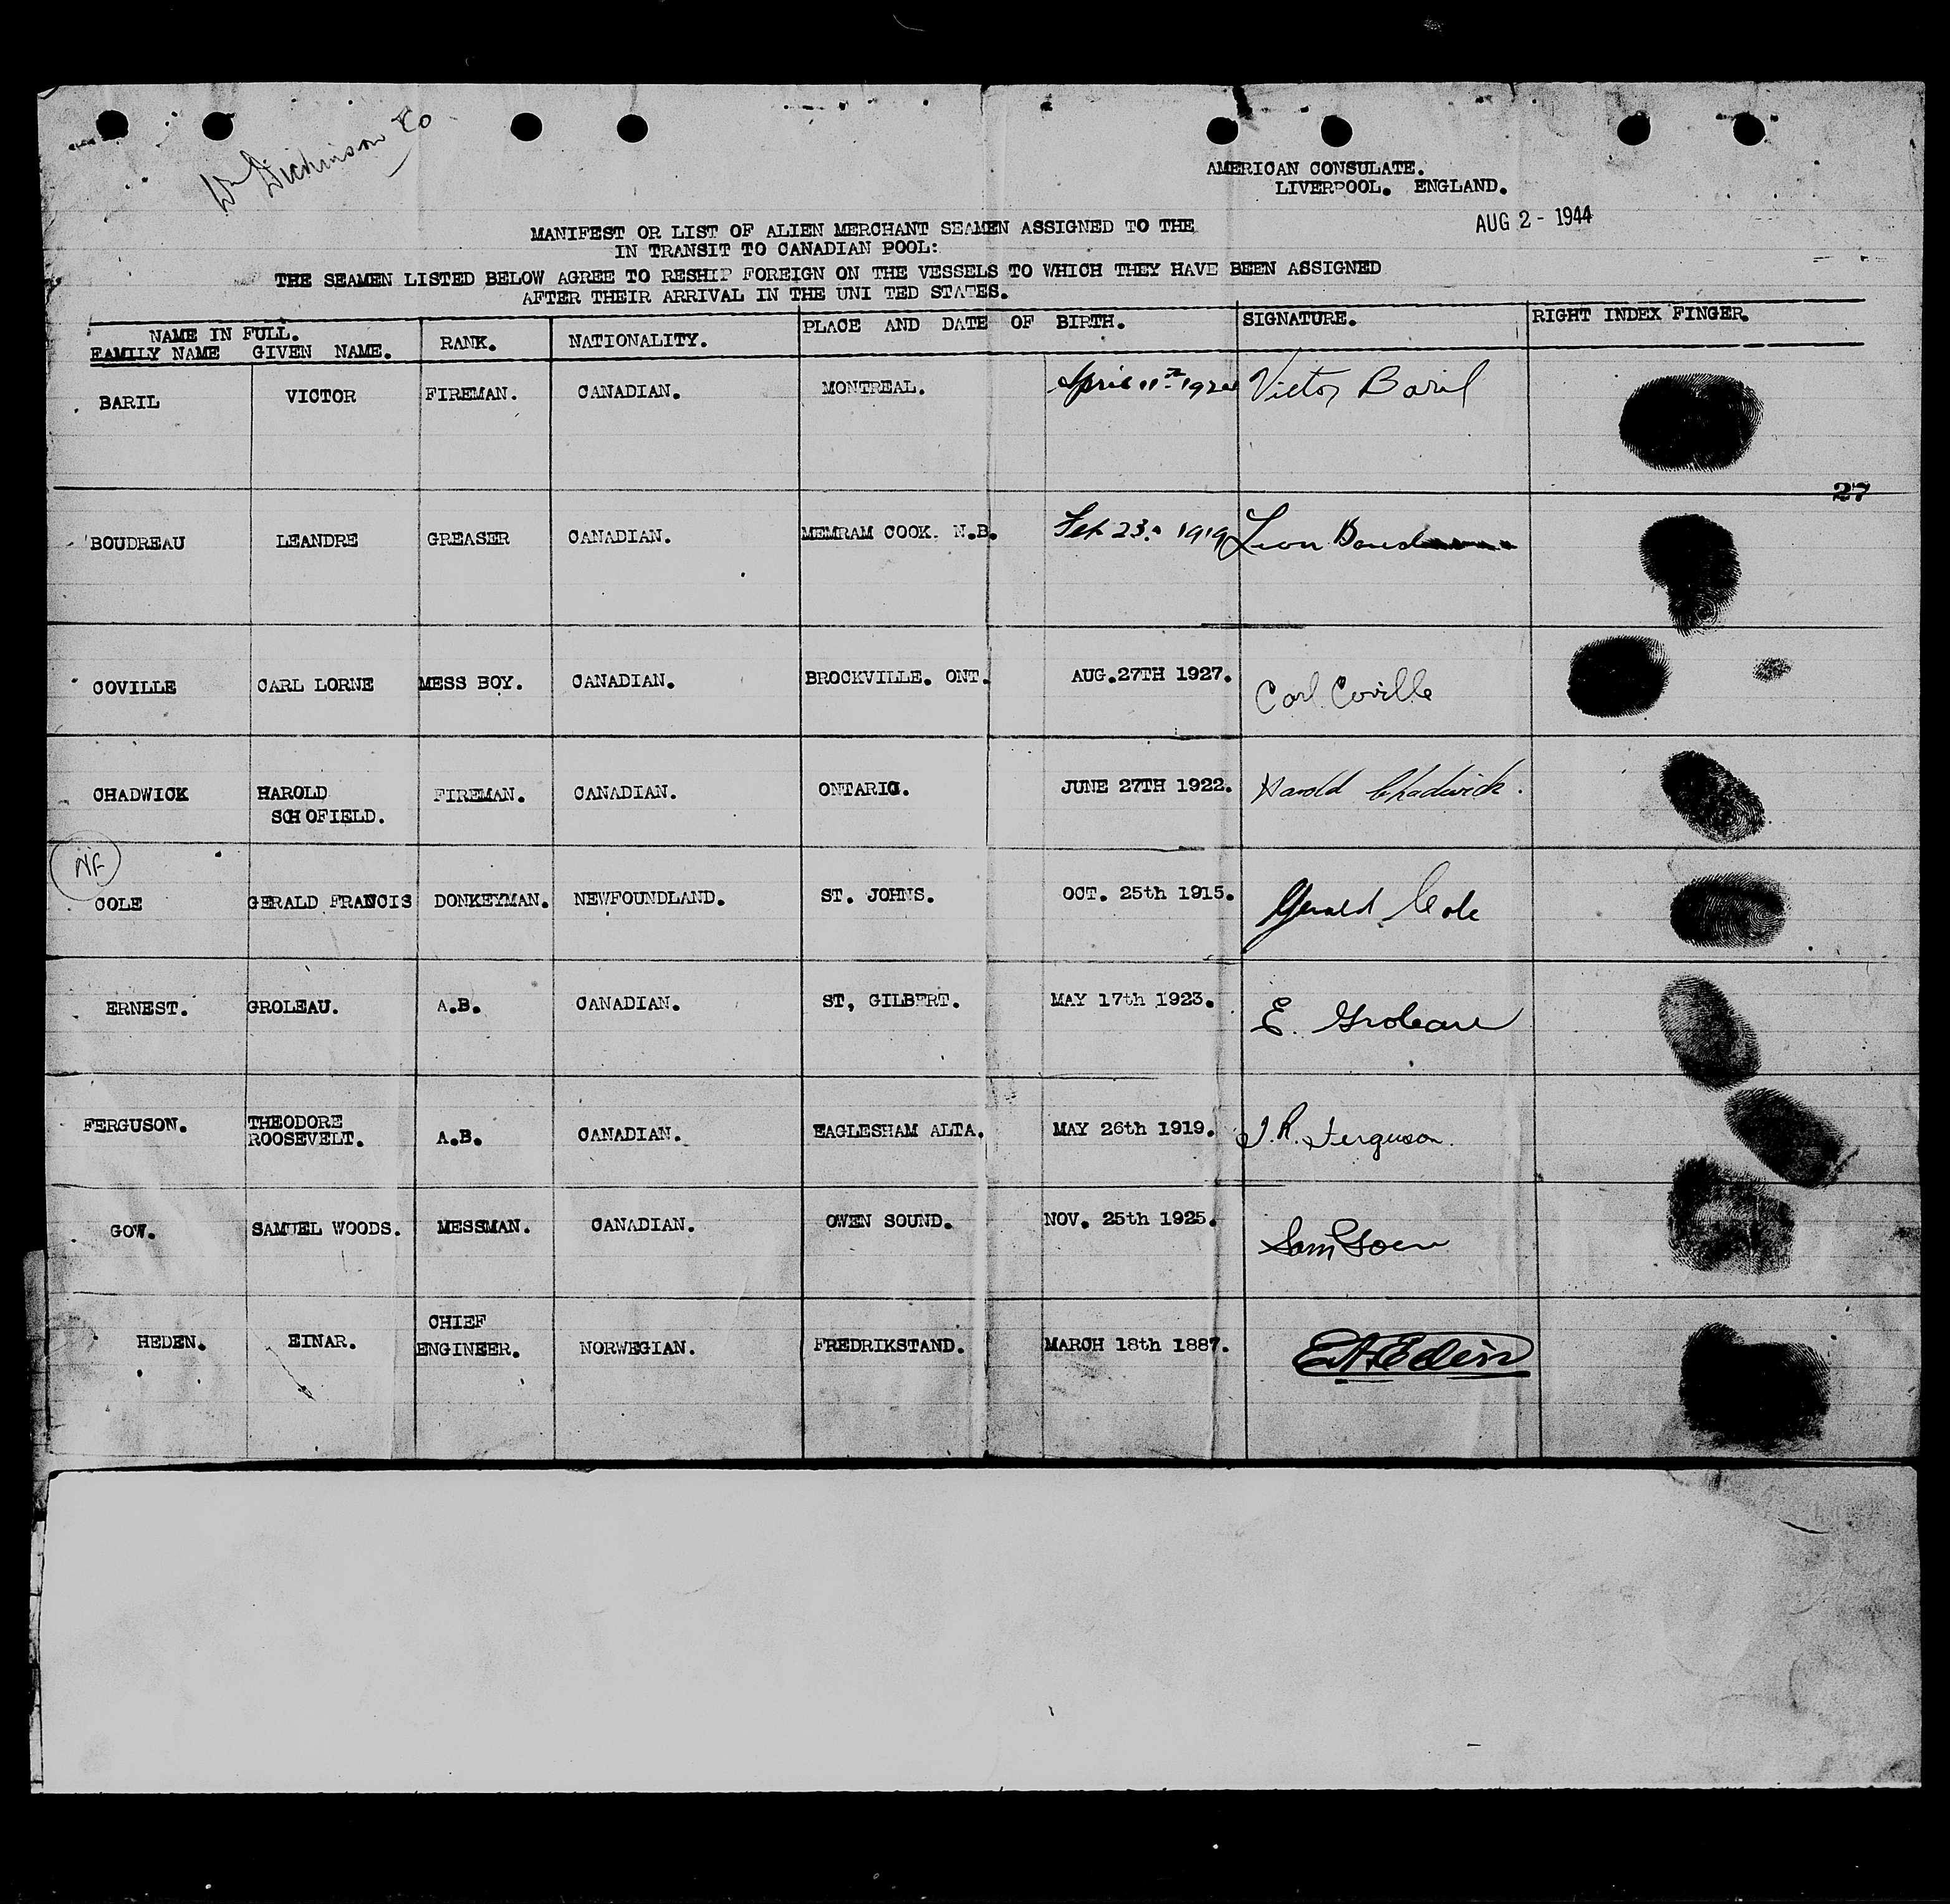 Wm Dickinson Co
AMERICAN CONSULATE.
LIVERPOOL. ENGLAND.
AUG 2 - 1944
MANIFEST OR LIST OF ALIEN MERCHANT SEAMEN ASSIGNED TO THE
IN TRANSIT TO CANADIAN POOL:
THE SEAMEN LISTED BELOW AGREE TO RESHIP FOREIGN ON THE VESSELS TO WHICH THEY HAVE BEEN ASSIGNED
AFTER THEIR ARRIVAL IN THE UNI TED STATES.
NAME IN FULL. RANK. NATIONALITY. PLACE AND DATE OF BIRTH. SIGNATURE. RIGHT INDEX FINGER.
FAMILY NAME GIVEN NAME.
BARIL VICTOR FIREMAN. CANADIAN. MONTREAL. April 11th 192 Victor Baril
27
BOUDREAU LEANDRE GREASER CANADIAN. MEMRAM COOK. N.B. Feb 23. 1919 Leon
COVILLE CARL LORNE MESS BOY. CANADIAN. BROCKVILLE. ONT. AUG.27TH 1927. Carl Coville
CHADWICK HAROLD FIREMAN. CANADIAN. ONTARIO. JUNE 27TH 1922. Harold Chadwick.
SCHOFIELD.
NF
COLE GERALD FRANCIS DONKEYMAN. NEWFOUNDLAND. ST. JOHNS. OCT. 25th 1915. Gerald Cole
ERNEST. GROLEAU. A.B. CANADIAN. ST, GILBERT. MAY 17th 1923. E. Groleau
FERGUSON. THEODORE A.B. CANADIAN. EAGLESHAM ALTA. MAY 26th 1919. T.R. Ferguson.
ROOSEVELT.
GOW. SAMUEL WOODS. MESSMAN. CANADIAN. OWEN SOUND. NOV. 25th 1925. Sam Gow
CHIEF
HEDEN. EINAR. ENGINEER. NORWEGIAN. FREDRIKSTAND. MARCH 18th 1887.